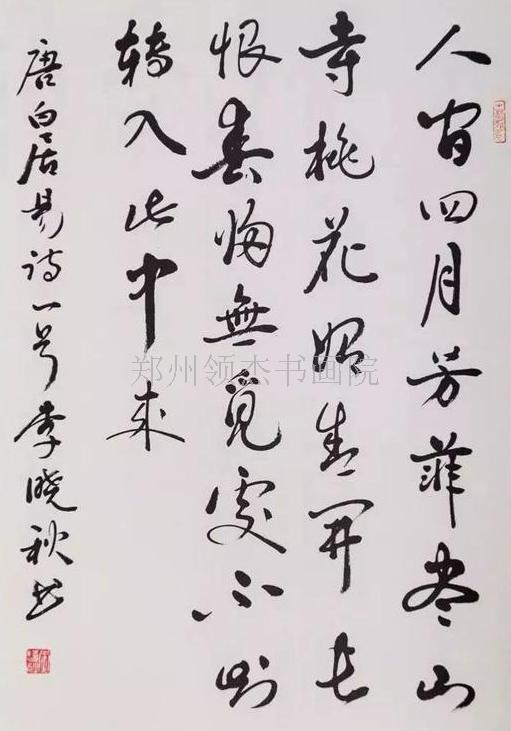 人间四月芳菲尽山
寺桃花始盛開长
恨春归無覓處不知
转入此中来
唐白居易诗一首 李晓秋书
郑州领杰书画院